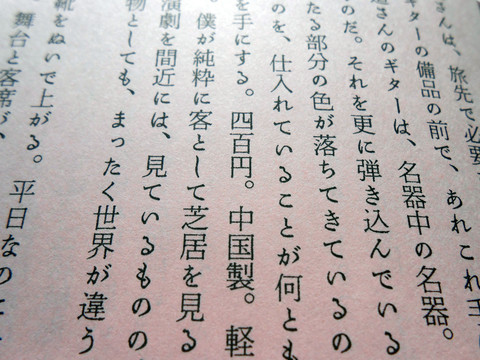 さんは、旅先で必要
ギターの備品の前で、あれこれ
道さんのギターは、名器中の名器。
のだ。それを更に弾き込んでいる
たる部分の色が落ちてきているの
のを、仕入れていることが何とも
を手にする。四百円。中国製。軽
。僕が純粋に客として芝居を見る
演劇を間近には、見ているものの
物としても、まったく世界が違う
靴をぬいで上がる。平日なのに
舞台と客席が、